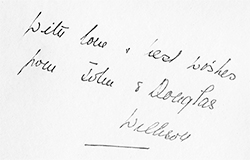 With love & best wishes
from John & Douglas